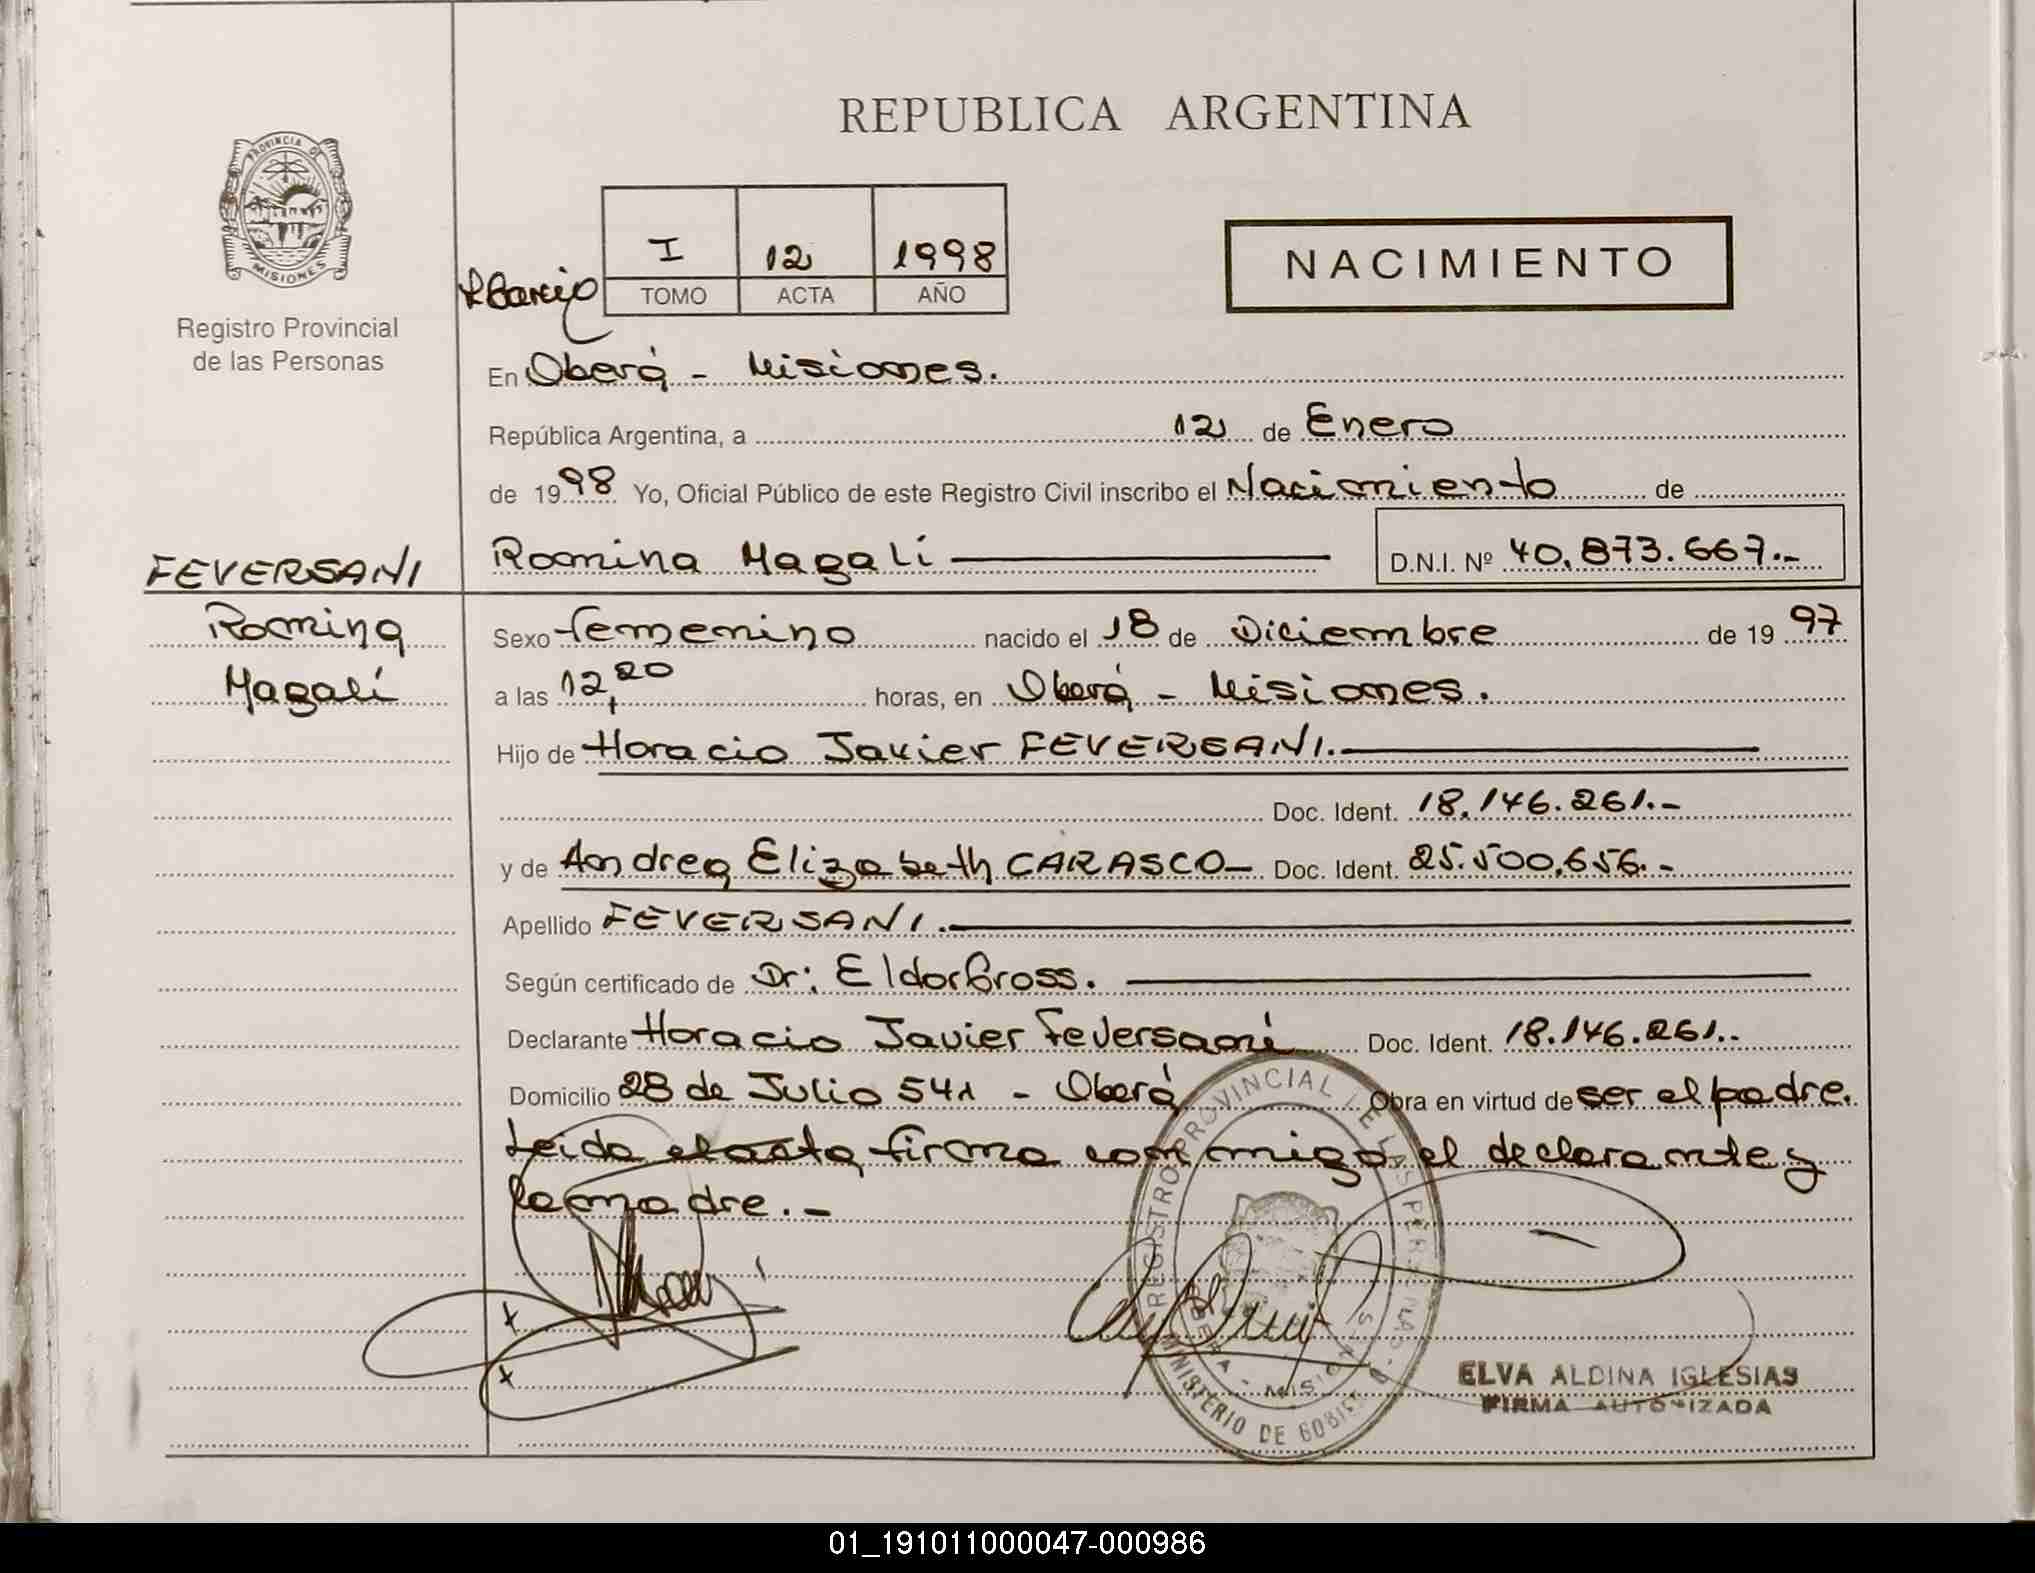 REPUBLICA ARGENTINA
PROVINCIA DE
MISIONES
Registro Provincial
de las Personas
I 12 1998
TOMO ACTA AÑO
NACIMIENTO
En Oberá - Misiones.
República Argentina, a 12 de Enero
de 1998 Yo, Oficial Público de este Registro Civil inscribo el Nacimiento de
Romina Magalí D.N.I. Nº 40.873.667.-
FEVERSANI
Romina
Magalí
Sexo femenino nacido el 18 de Diciembre de 1997
a las 12,20 horas, en Oberá - Misiones.
Hijo de Horacio Javier FEVERSANI.
Doc. Ident. 18.146.261.-
y de Andrea Elizabeth CARASCO- Doc. Ident. 25.500.656.-
Apellido FEVERSANI.
Según certificado de Dr: Eldor Gross.
Declarante Horacio Javier Feversani Doc. Ident. 18.146.261..
Domicilio 28 de Julio 541 - Oberá Obra en virtud de ser el padre.
Leida el acta firma conmigo el declarante y
la madre.-
REGISTRO PROVINCIAL DE LAS PERSONAS
MINISTERIO DE GOBIERNO
OBERA - MISIONES
ELVA ALDINA IGLESIAS
FIRMA AUTORIZADA
01_191011000047-000986